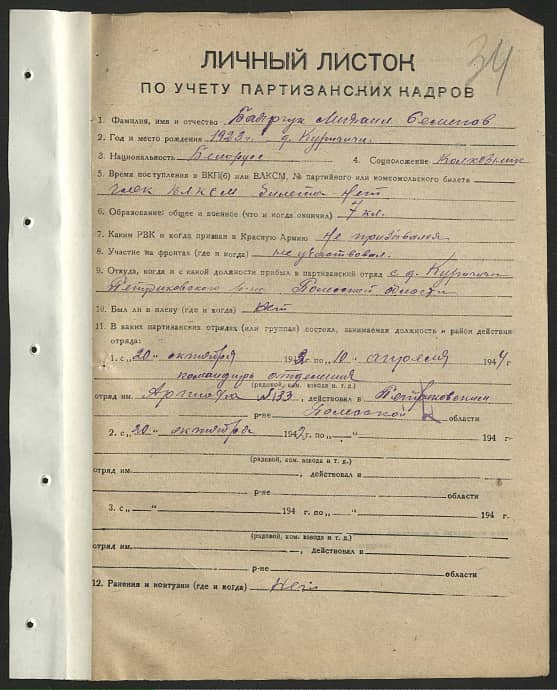 34
ЛИЧНЫЙ ЛИСТОК
ПО УЧЕТУ ПАРТИЗАНСКИХ КАДРОВ
1. Фамилия, имя и отчество Михаил Семенов
2. Год и место рождения 1923 г. д. Куритичи.
3. Национальность Белорус 4. Соцположение Колхозник
5. Время поступления в ВКП(б) или ВЛКСМ, № партийного или комсомольского билета
член ВЛКСМ билета нет.
6. Образование: общее и военное (что и когда окончил) 7 кл.
7. Каким РВК и когда призван в Красную Армию Не призывался
8. Участие на фронтах (где и когда) не участвовал.
9. Откуда, когда и с какой должности прибыл в партизанский отряд с д. Куритичи
Петриковского р-на Полесской области
10. Был ли в плену (где и когда) нет
11. В каких партизанских отрядах (или группах) состоял, занимаемая должность и район действия
отряда:
1. с „20“ октября 194 г. по „10“ апреля 1944 г
командир отделения
(рядовой, ком. взвода и т. д.)
отряд им. №133, действовал в Петриковским
р-не Полесской области
2. с „20“ октября 1942 г. по „ “ 194 г
(рядовой, ком. взвода и т. д.)
отряд им. , действовал в
р-не области
3. с „ “ 194 г. по „ “ 194 г
(рядовой, ком. взвода и т. д.)
отряд им. , действовал в
р-не области
12. Ранения и контузии (где и когда) Нет